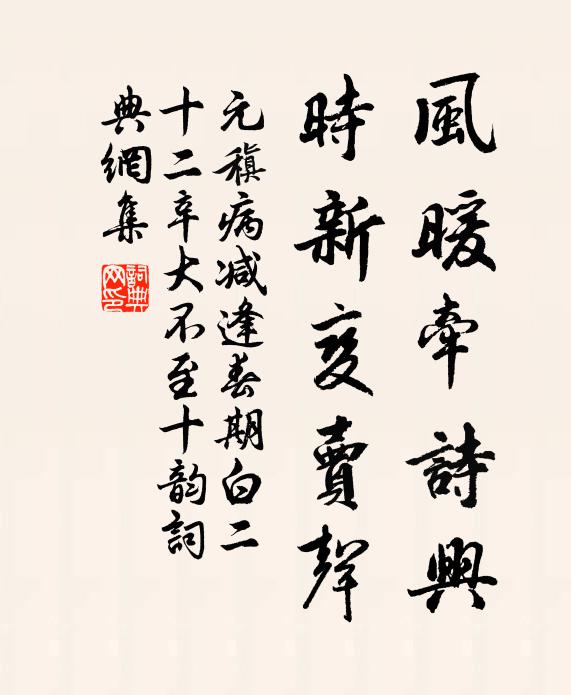 風暖牽詩興
時新變賣聲
元稹病减逢春期白二
十二辛大不至十韵詞
典網集
詞典网印